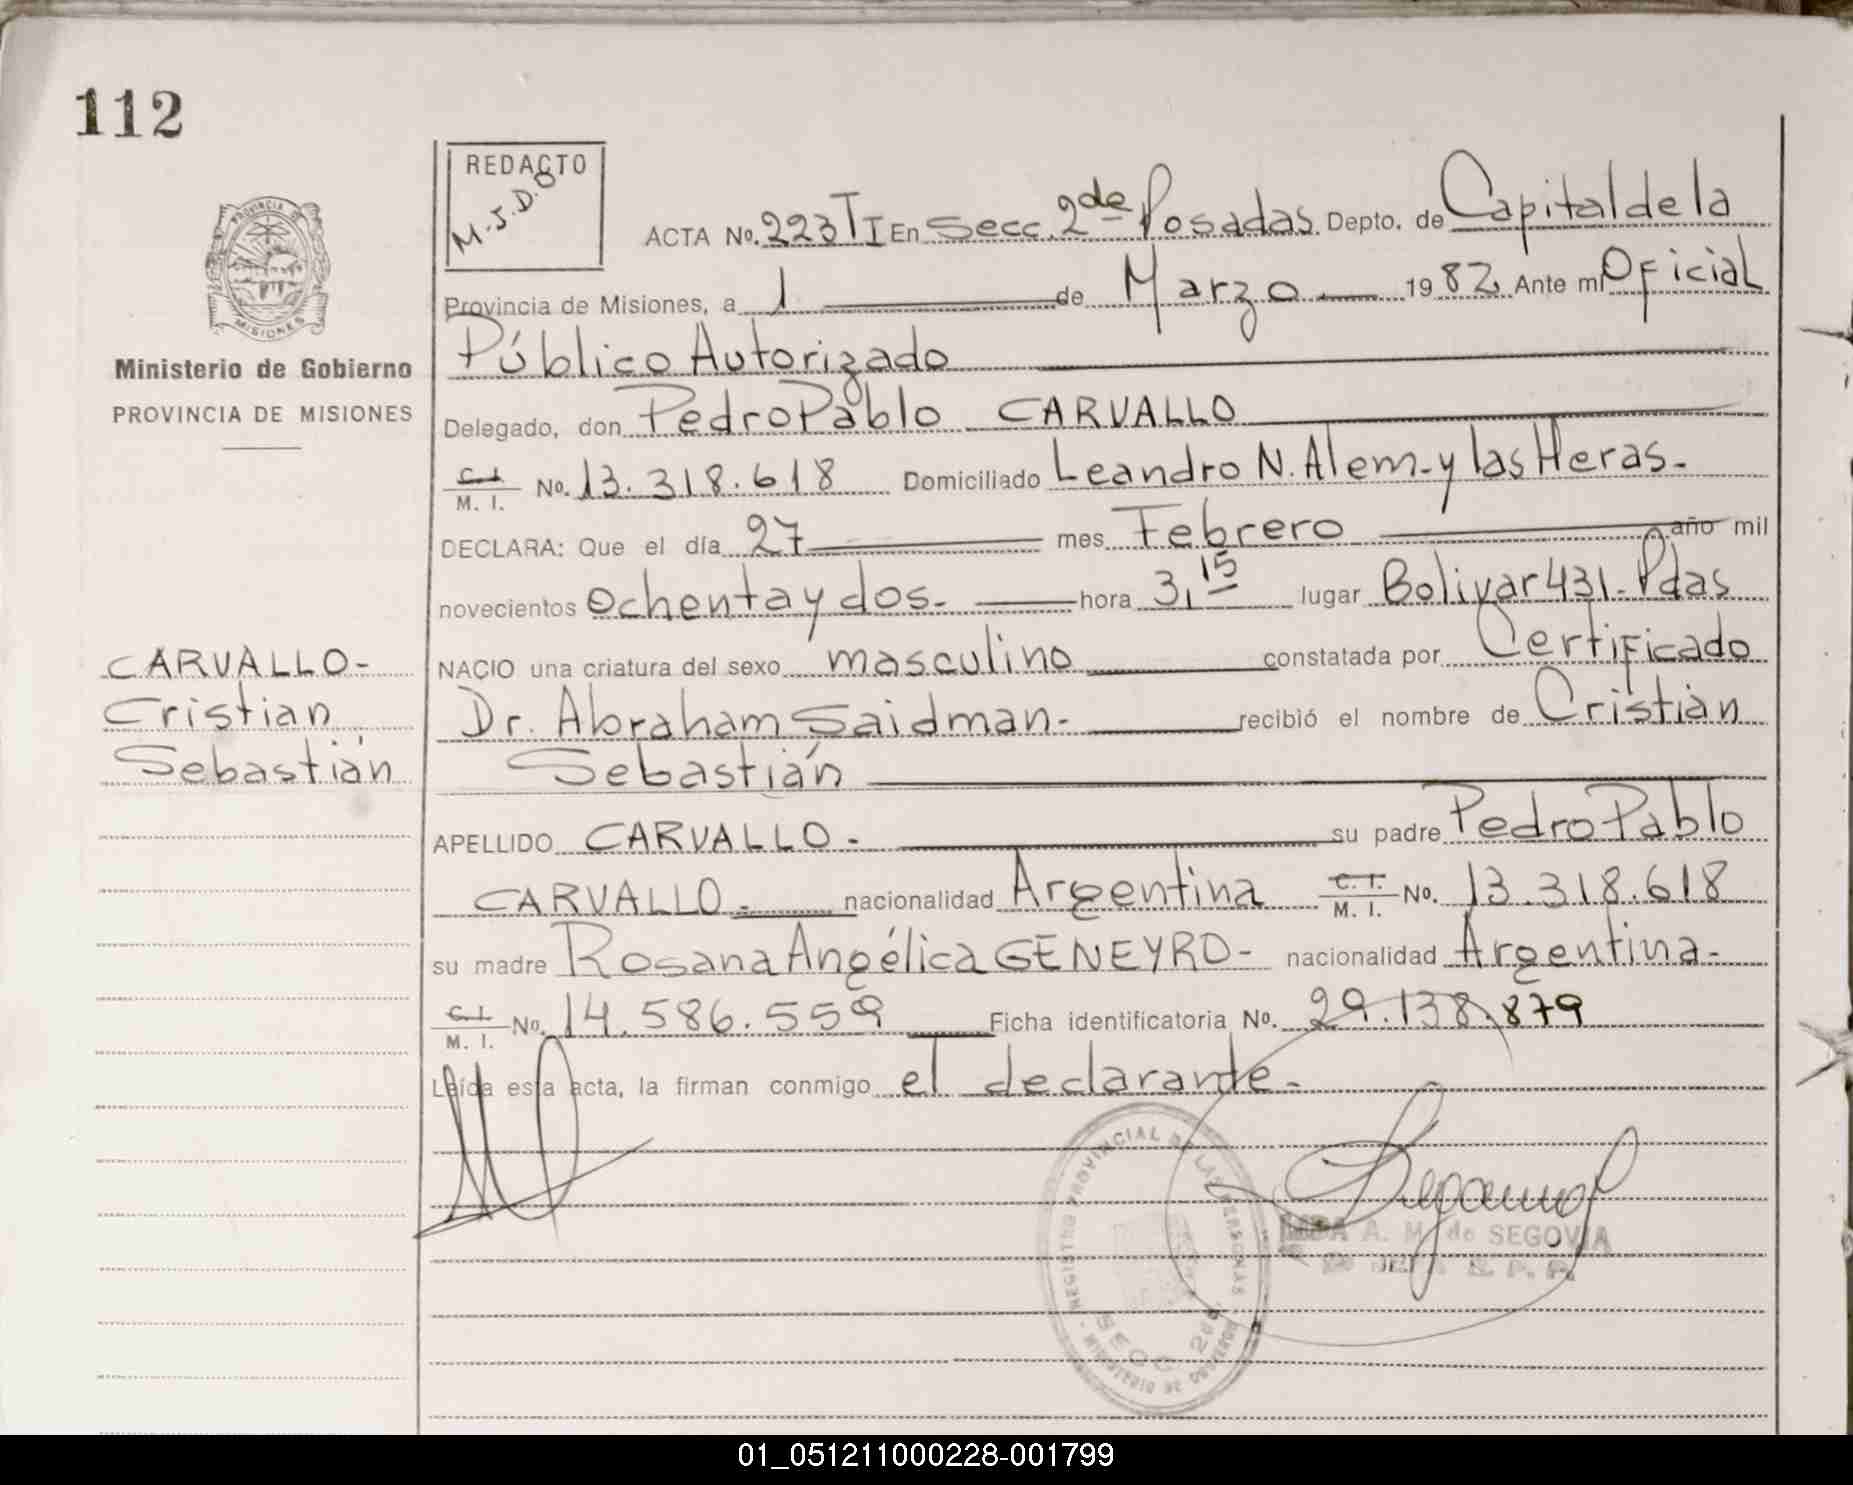 112
REDACTO
M.J.D.O
PROVINCIA DE
MISIONES
ACTA No. 223 TI En Secc. 2da Posadas Depto. de Capital de la
Provincia de Misiones, a 1 de Marzo 1982 Ante mí Oficial
Ministerio de Gobierno
Público Autorizado
PROVINCIA DE MISIONES
Delegado, don Pedro Pablo CARVALLO
C.I.
M. I. No. 13.318.618 Domiciliado Leandro N. Alem - y las Heras.-
DECLARA: Que el día 27 mes Febrero año mil
novecientos ochenta y dos.- hora 3,15 lugar Bolivar 431 - Pdas
CARVALLO-
NACIO una criatura del sexo masculino constatada por Certificado
Cristian
Dr. Abraham Saidman.- recibió el nombre de Cristian
Sebastián
Sebastián
APELLIDO CARVALLO.- su padre Pedro Pablo
CARVALLO.- nacionalidad Argentina C. I.
M. I. No. 13.318.618
su madre Rosana Angélica GENEYRO- nacionalidad Argentina.-
C.I.
M. I. No. 14.586.559 Ficha identificatoria No. 29.138.879
Leída esta acta, la firman conmigo el declarante.-
REGISTRO PROVINCIAL DE LAS PERSONAS
SECC. 2da
MINISTERIO DE GOBIERNO
A. M. de SEGOVIA
01_051211000228-001799